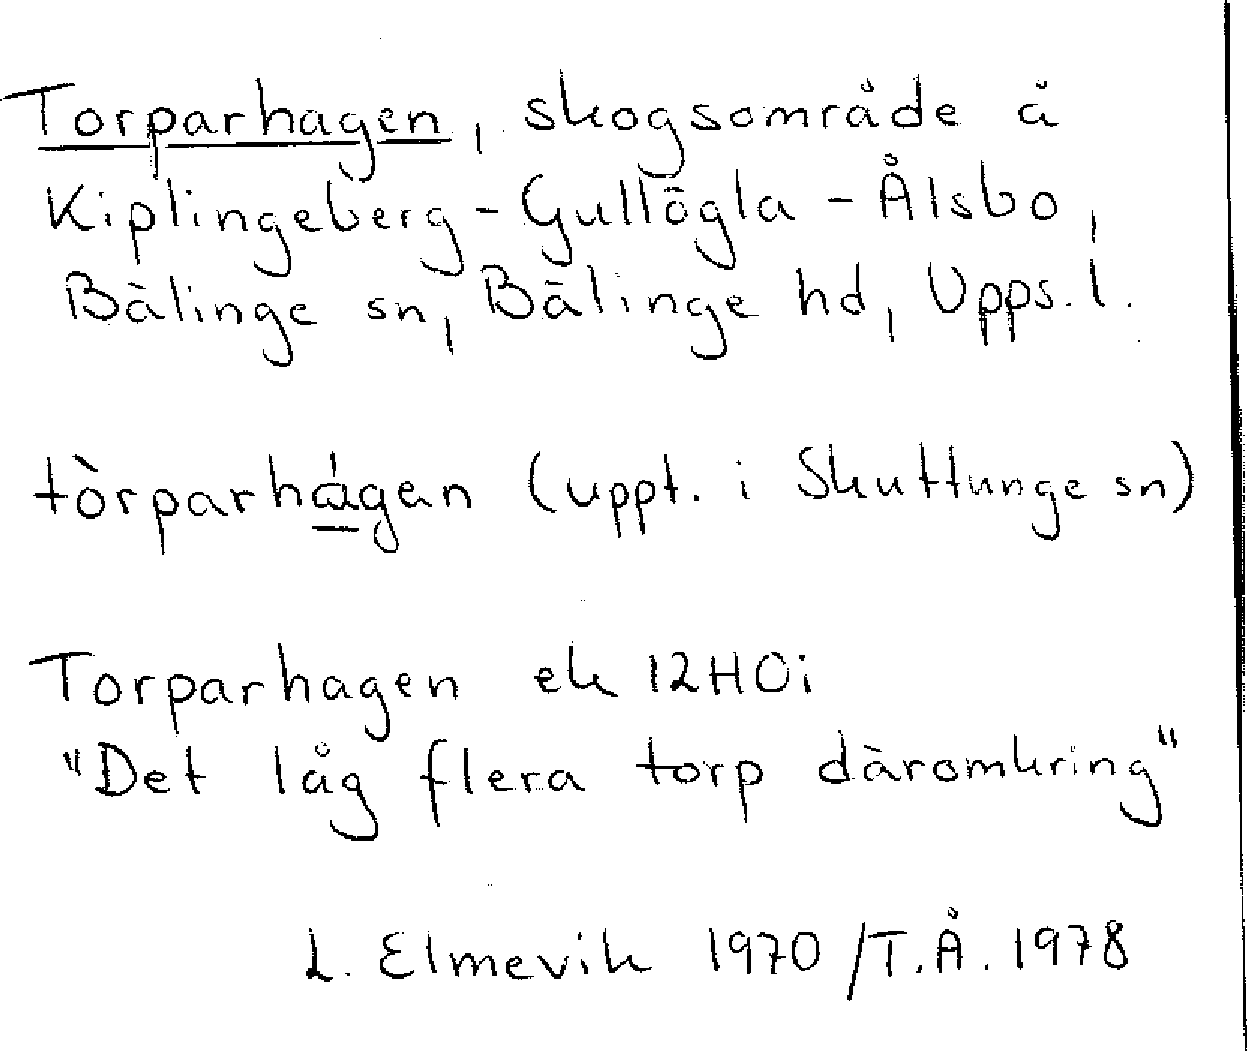 Torparhagen, skogsområde å
Kiplingeberg-Gullögla-Ålsbo,
Bälinge sn, Bälinge hd, Upps.l.
tòrparhágen (uppt. i Skuttunge sn)
Torparhagen ek 12H0i
"Det låg flera torp däromkring"
L. Elmevik 1970/T.Å. 1978